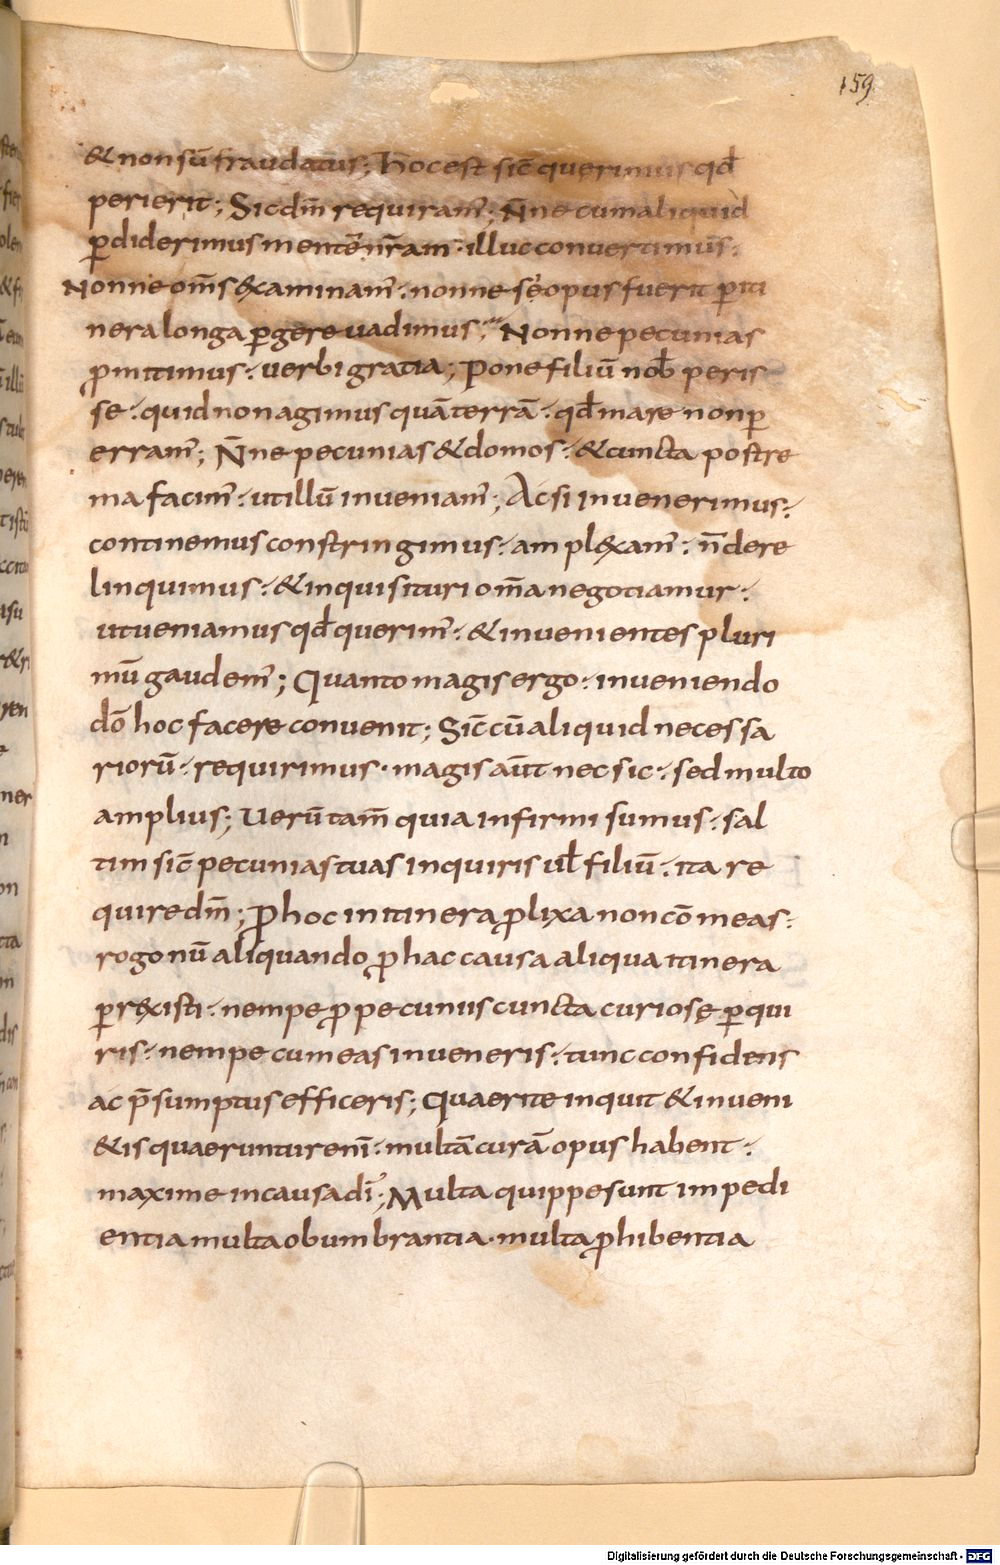 159
& non sū fraudatus; hoc est sic̄ querimus qđ
perierit; Sic dm̄ requiram̄; N̄ne cum aliquid
ꝑdiderimus mentē nr̄am · illuc convertimus ·
Nonne om̄s examinam̄ · nonne se opus fuerit ꝑ iti
nera longa ꝑgere vadimus; Nonne pecunias
ꝓmittimus · verbi gratia; Pone filiū nob̄ peris
se · quid non agimus quā terrā · qđ mare non ꝑ
erram̄; N̄ne pecunias & domos · & cuncta postre
ma facim̄ · ut illū inveniam̄; Ac si invenerimus ·
continemus constringimus · amplexam̄ · n̄ dere
linquimus · & inquisituri om̄a negotiamur ·
ut veniamus qđ querim̄ · & invenientes pluri
mū gaudem̄; Quanto magis ergo · inveniendo
dō hoc facere convenit; Sic̄ cū aliquid necessa
riorū · requirimus · magis aūt nec sic · sed multo
amplius; Verūtam̄ quia infirmi sumus · sal
tim sic̄ pecunias tuas inquiris vl̄ filiū · ita re
quire dm̄; ꝓ hoc in itinera ꝓlixa non cōmeas ·
rogo nū aliquando ꝓ hac causa aliqua itinera
ꝑrexisti · nempe ꝓ pecuniis cuncta curiosę ꝑqui
ris · nempe cum eas inveneris · tunc confidens
ac p̄sumptus efficeris; Quaerite inquit & inveni
&is quaeruntur enī · multā curā opus habent ·
maxime in causa dī; Multa quippe sunt impedi
entia multa obumbrantia · multa ꝓhibentia
Digitalisierung gefördert durch die Deutsche Forschungsgemeinschaft - DFG